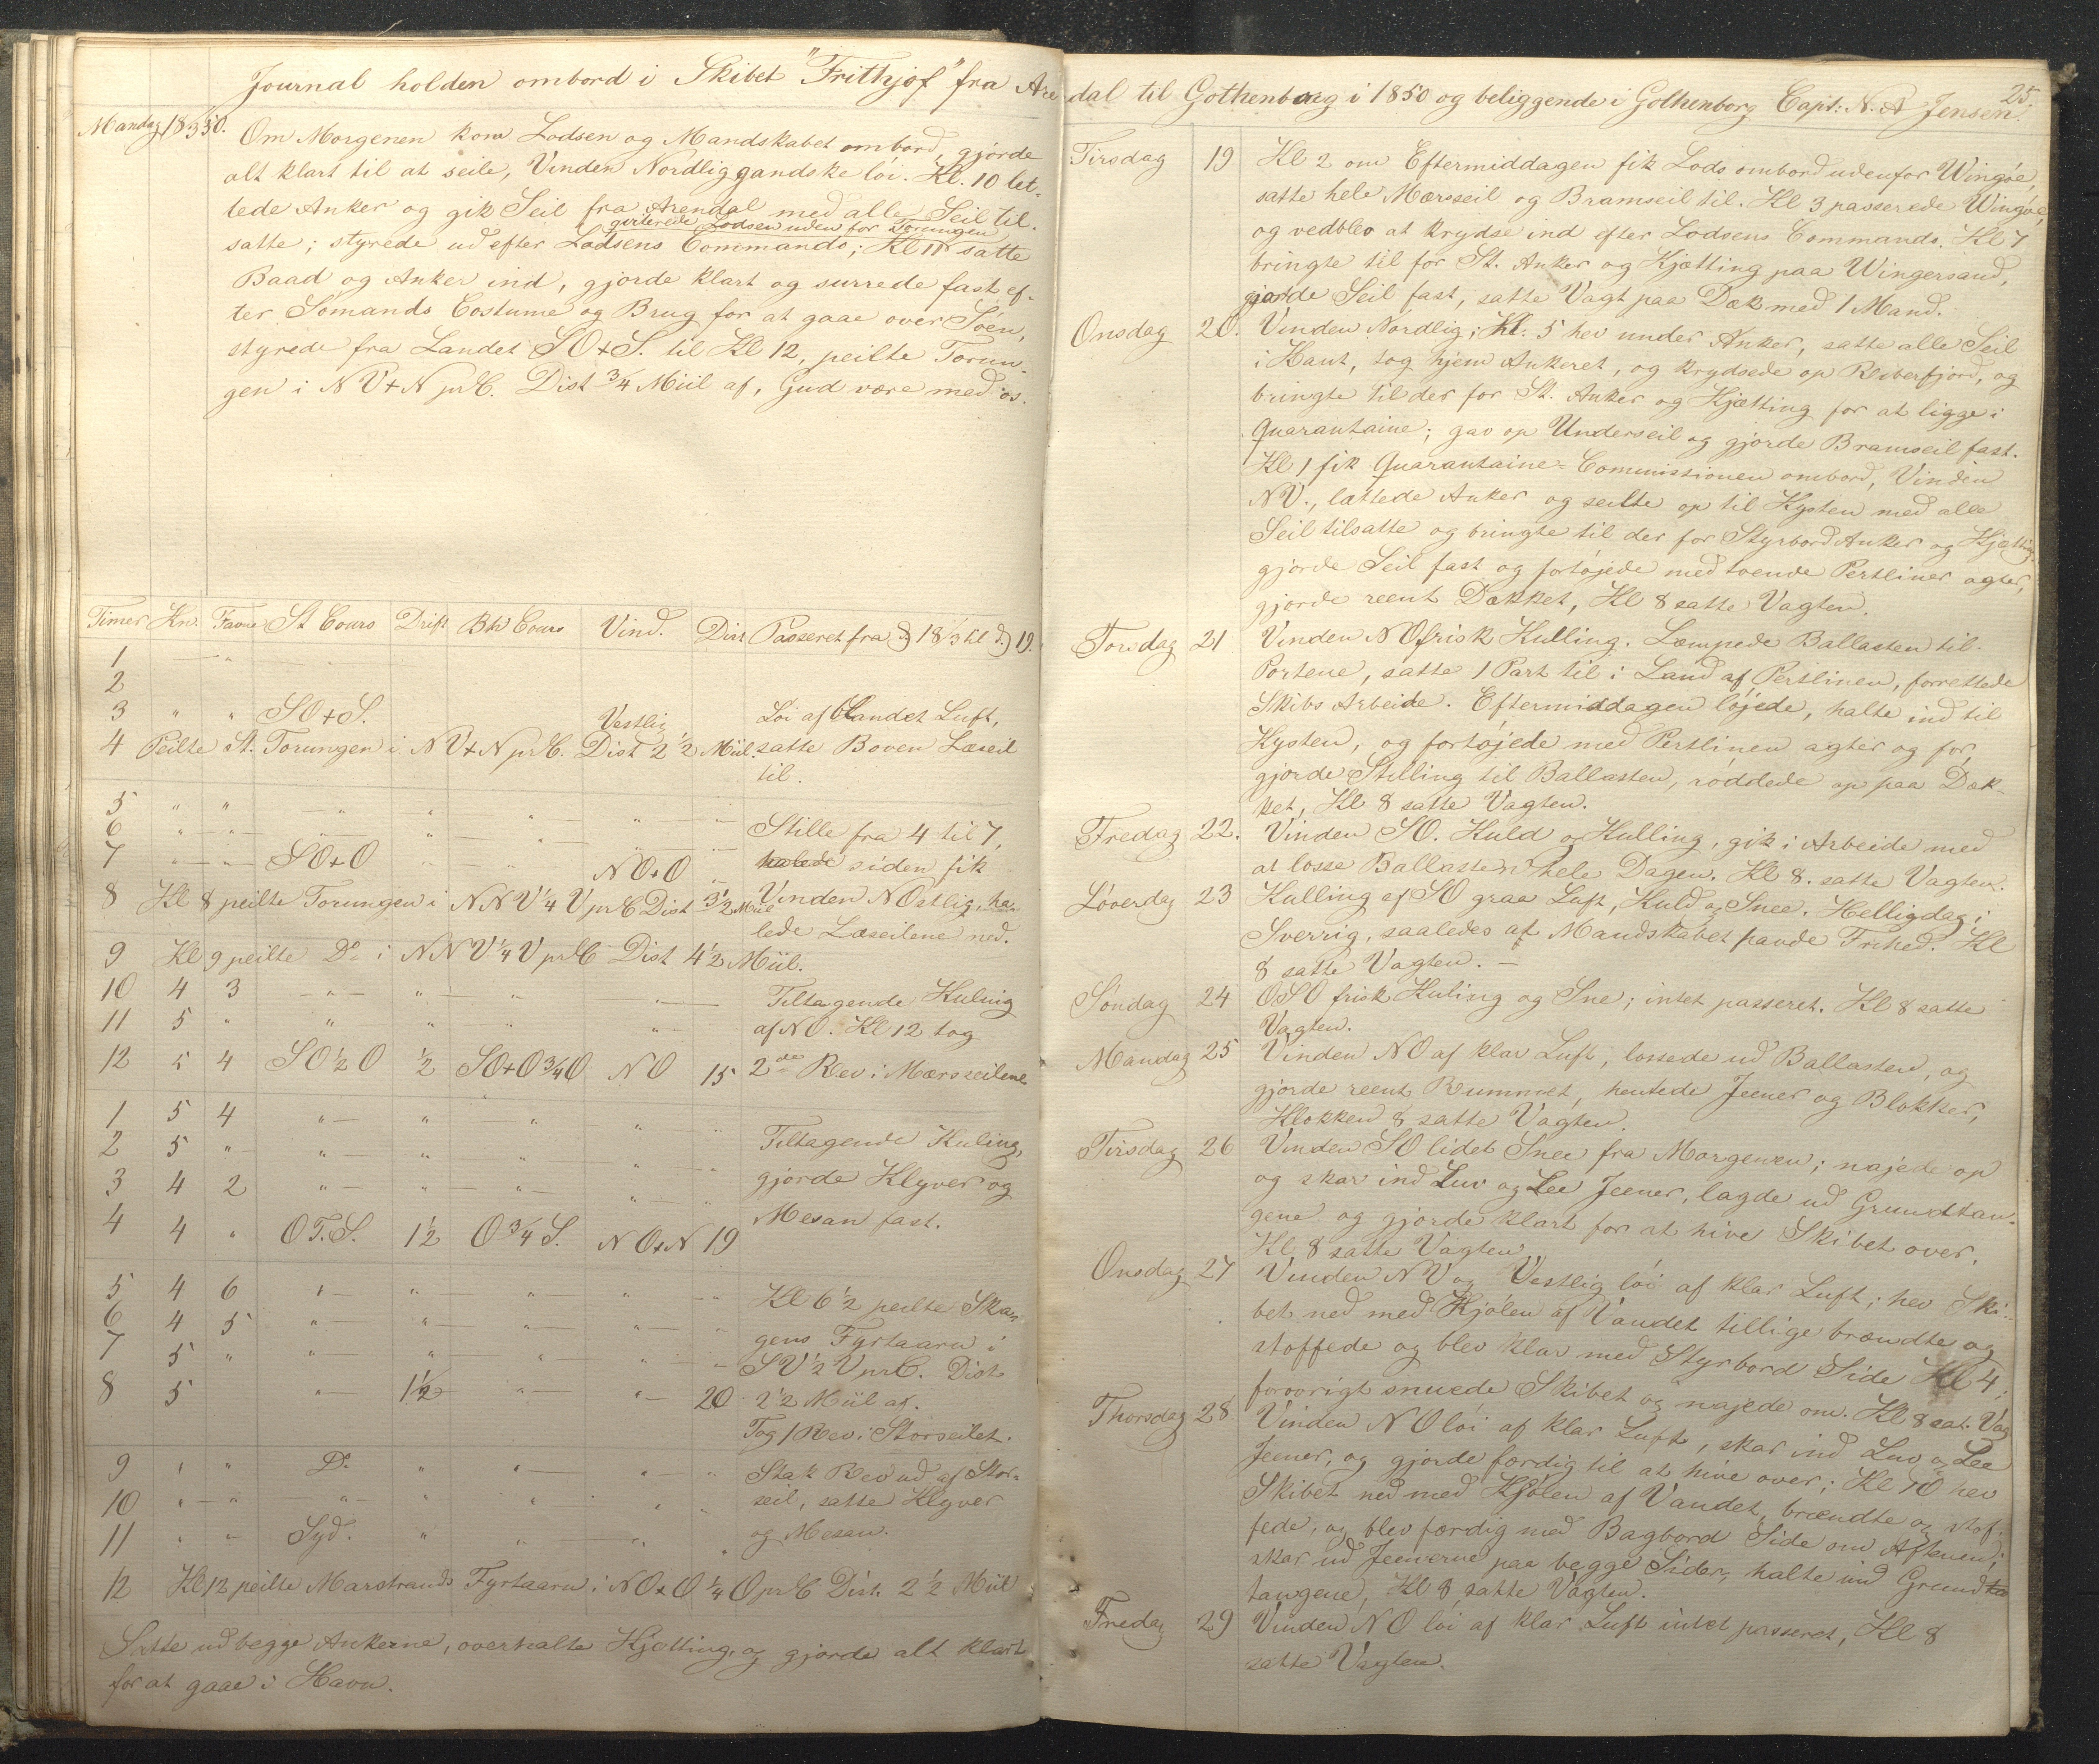 Journal holden ombord i Skibet "Frithjof" fra Aren
Mandag 18/3 50. Om Morgenen kom Lodsen og Mandskabet ombord, gjórde
alt klart til at seile, Vinden Nordlig gandske lói. Kl. 10 let-
tede Anker og gik Seil fra Arendal med alle Seil til.
qviterede Lodsen uden for Torungen
satte; styrede ud efter Lodsens Commando; Kl 11 satte
Baad og Anker ind, gjorde klart og surrede fast ef-
ter Sómands Costume og Brug for at gaae over Sóen,
styrede fra Landet SO+S. til Kl 12, peilte Torun-
gen i NV+N prC. Dist 3/4 Miil af, Gud være med os.
Timer Kn. Favne St Cours Drift Bh Cours Vind. Dist Passeret fra D 18/3 til D 19.
1 — "
2
3 " " SO+S. Vestlig Lói af blandet Luft,
4 Peilte St. Torungen i NV+N prC. Dist 2 1/2 Miil. satte Boven Læseil
til.
5 " " — " " " —
6 " — " — " — " — " — Stille fra 4 til 7,
7 " — " — SO+O " — " — NO+O " halede siden fik
8 Kl 8 peilte Torungen i NNV 1/4 V prC Dist 3 1/2 Miil Vinden NOstlig, ha-
lede Læseilene ned.
9 Kl 9 peilte Do i NNV 1/4 V prC Dist 4 1/2 Miil.
10 4 3 — " — " — " — " — Tiltagende Kuling
11 5 " " " " " af NO. Kl 12 tog
12 5 4 SO 1/2 O 1/2 SO+O 3/4 O NO 15 2det Rev i Mærsseilene
1 5 4 " — " " " "
2 5 " " — " " " — " Tiltagende Kuling,
3 4 2 " — " — " — " — " gjorde Klyver og
4 4 " OT.S. 1 1/2 O 3/4 S. NO+N 19 Mesan fast.
5 4 6 " — " — " — " — " Kl 6 1/2 peilte Skan-
6 4 5 " — " — " — " — " gens Fyrtaarn i
7 5 " " — " — " — " — " SV 1/2 V prC. Dist
8 5 " — 1 1/2 " — " — 20 2 1/2 Miil af.
Tog 1 Rev i Storseilet.
9 " " Do " " — " — " Stak Rev ud af Stor-
10 " — " " — " " " " seil, satte Klyver
11 " " Syd. " " " " og Mesan.
12 Kl 12 peilte Marstrands Fyrtaarn i NO+O 1/4 O prC Dist. 2 1/2 Miil
Satte ud begge Ankerne, overhalte Kjætting, og gjorde alt klart
for at gaae i Havn.
dal til Gothenborg i 1850 og beliggende i Gothenborg Capt: N. A Jensen. 25.
Tirsdag 19 Kl 2 om Eftermiddagen fik Lods ombord udenfor Wingóe,
satte hele Mærsseil og Bramseil til. Kl 3 passerede Wingóe,
og vedblev at krydse ind efter Lodsens Commando. Kl 7
bringte til for St. Anker og Kjætting paa Wingersand,
gjorde Seil fast, satte Vagt paa Dæk med 1 Mand.
Onsdag 20. Vinden Nordlig; Kl. 5 hev under Anker, satte alle Seil
i Kant, tog hjem Ankeret, og krydsede op Reberfjord, og
bringte til der for St. Anker og Kjætting for at ligge i
Quarantaine; gav op Underseil og gjorde Bramseil fast.
Kl 1 fik Quarantaine-Commissionen ombord, Vinden
NV., lættede Anker og seilte op til Kysten med alle
Seil tilsatte og bringte til der for Styrbord Anker og Kjætting
gjorde Seil fast og fortójede med tvende Pertliner agter,
gjorde reent Dækket, Kl 8 satte Vagten.
Torsdag 21 Vinden NO frisk Kulling. Læmpede Ballasten til
Portene, satte 1 Part til i Land af Pertlinen, forrettede
Skibs Arbeide. Eftermiddagen lójede, halte ind til
Kysten, og fortójede med Pertlinen agter og for,
gjorde Stilling til Ballasten, róddede op paa Dæk-
ket, Kl 8 satte Vagten.
Fredag 22. Vinden SO. Kuld og Kulling, gik i Arbeide med
at losse Ballasten hele Dagen. Kl 8. satte Vagten.
Lóverdag 23 Kulling af SO graa Luft, Kuld og Snee. Helligdag i
Sverrig, saaledes at Mandskabet havde Frihed. Kl
8 satte Vagten. —
Sóndag 24 OSO frisk Kuling og Sne; intet passeret. Kl 8 satte
Vagten.
Mandag 25 Vinden NO af klar Luft, lossede ud Ballasten, og
gjorde reent Rummet, hentede Jeener og Blokker,
Klokken 8 satte Vagten.
Tirsdag 26 Vinden SO lidet Snee fra Morgenen; najede op
og skar ind Luv og Lee Jeener, lagde ud Grundtan-
gene og gjorde klart for at hive Skibet over.
Kl 8 satte Vagten.
Onsdag 27 Vinden NV og Vestlig lói af klar Luft; hev Ski-
bet ned med Kjólen af Vandet tillige brændte og
stoffede og blev klar med Styrbord Side Kl 4;
foróvrigt snuede Skibet og najede om. Kl 8 sat. Vag
Thorsdag 28 Vinden NO lói af klar Luft, skar ind Luv og Lee
Jeener, og gjorde færdig til at hive over; Kl 10 hev
Skibet ned med Kjólen af Vandet, brændte og stof-
fede, og blev færdig med Bagbord Side om Aftenen;
skar ud Jeenerne paa begge Sider, halte ind Grund
tangene, Kl 8 satte Vagten.
Fredag 29 Vinden NO lói af klar Luft intet passeret, Kl 8
satte Vagten.